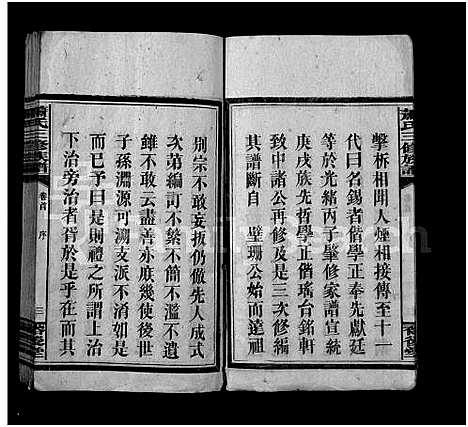 擊柝相聞人煙相接傳至十一
代曰名錫者偕學正奉先獻廷
等於光緒丙子肇修家譜宣統
庚戌族先哲學正偕瑤台銘軒
致中諸公再修及是三次修編
其譜斷自 壁珊公始而遠祖
別宗不敢妄扳仍倣先人成式
次第編訂不繁不簡不濫不遺
雖不敢云盡善亦庶幾使後世
子孫淵源可溯支派不淆
而已予曰是則禮之所謂上治
下治旁治者胥於是乎在而其
蕭氏三修族譜
卷首 序
三